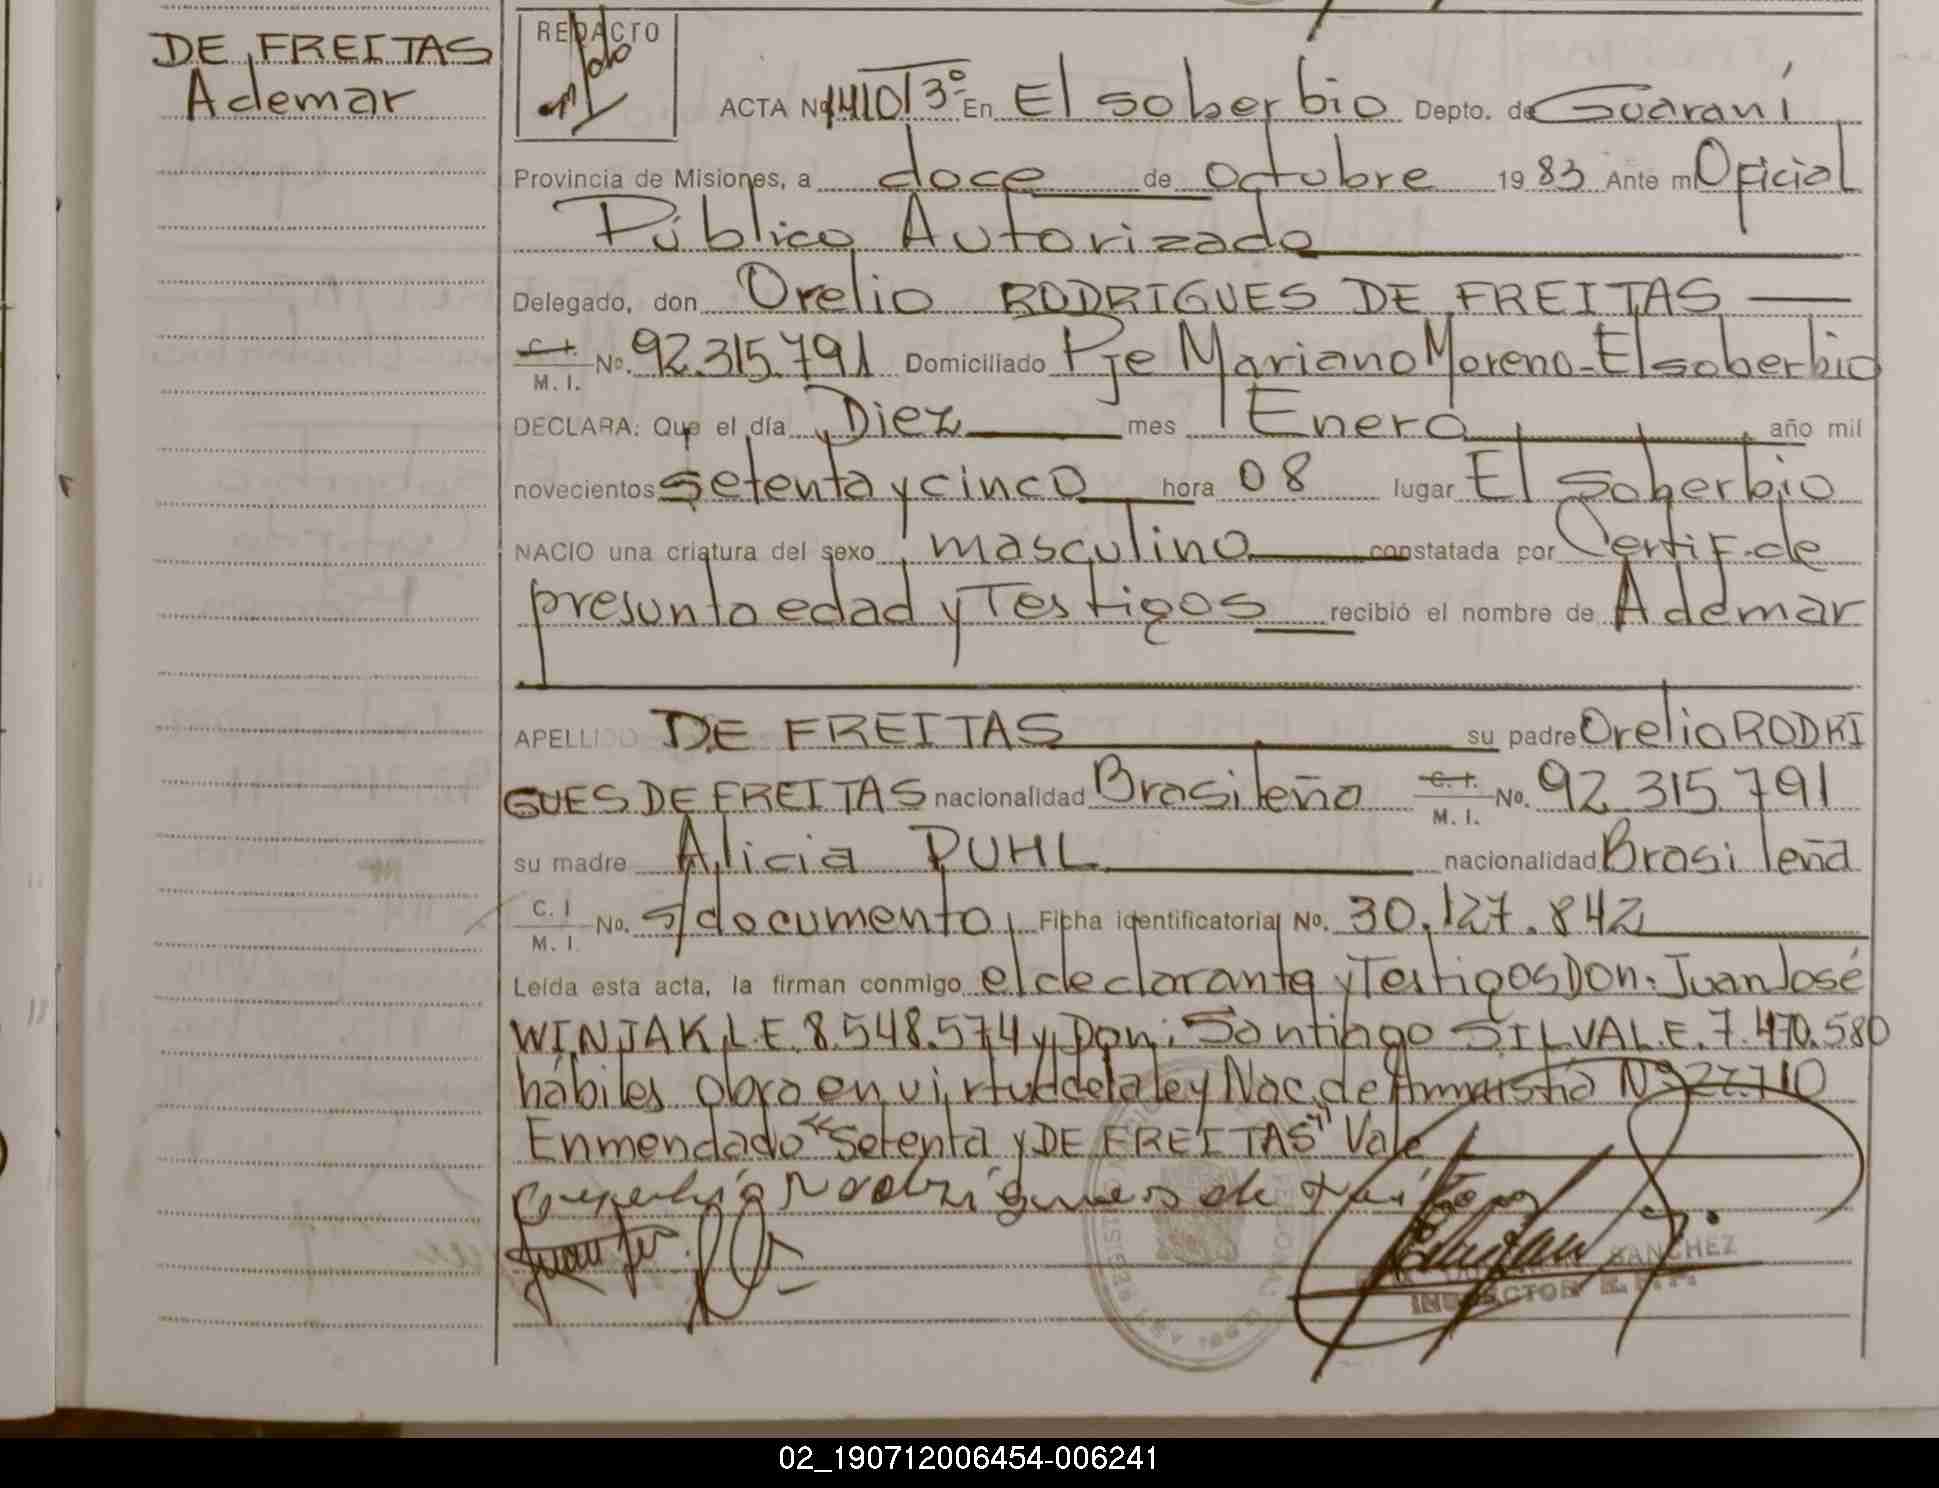 DE FREITAS
Ademar
REDACTO
ACTA Nº 1410 T 3º En El soberbio Depto. de Guaraní
Provincia de Misiones, a doce de octubre 19 83 Ante mi Oficial
Público Autorizado
Delegado, don Orelio RODRIGUES DE FREITAS
C. I. M. I. No. 92.315.791 Domiciliado Pje Mariano Moreno-El soberbio
DECLARA: Que el día Diez mes Enero año mil
novecientos setenta y cinco hora 08 lugar El Soberbio
NACIO una criatura del sexo masculino constatada por Certif. de
presunta edad y Testigos recibió el nombre de Ademar
APELLIDO DE FREITAS su padre Orelio RODRI
GUES DE FREITAS nacionalidad Brasileña C. I. M. I. No. 92.315.791
su madre Alicia PUHL nacionalidad Brasileña
C. I M. I No. s/documento Ficha identificatoria No. 30.127.842
Leída esta acta, la firman conmigo el declarante y Testigos Don: Juan José
WINJAK L.E. 8.548.574 y Don: Santiago SILVA L.E. 7.470.580
hábiles obra en virtud de la ley Nac. de Amnistia Nº 22.710
Enmendado "Setenta y DE FREITAS" Vale
Juan José
SANCHEZ
INSPECTOR
02_190712006454-006241